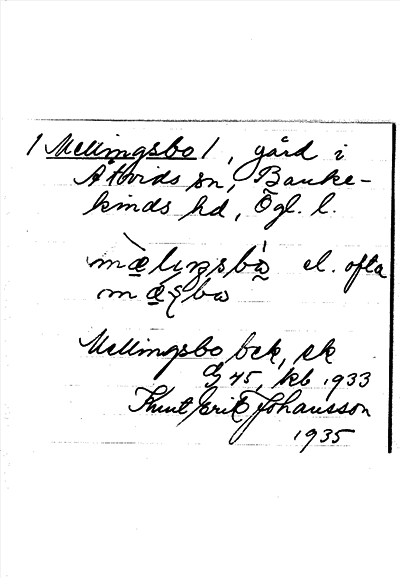 / Mellingsbo /, gård i
Åtvids sn, Banke-
kinds hd, Ögl. l.
mæ̀lıŋsbò el. ofta
mæ̀ʂbo
Mellingsbo bck, ek
G 45, kb 1933
Knut Erik Johansson
1935